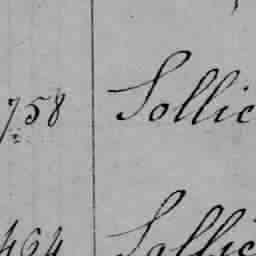 758 Sollic
464 Sollic